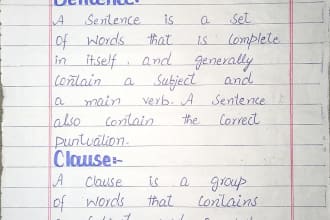 Sentence:-
A Sentence is a set
of words that is complete
in itself, and generally
contain a Subject and
a main verb. A Sentence
also contain the Correct
puntuation.
Clause:-
A Clause is a group
of words that contains